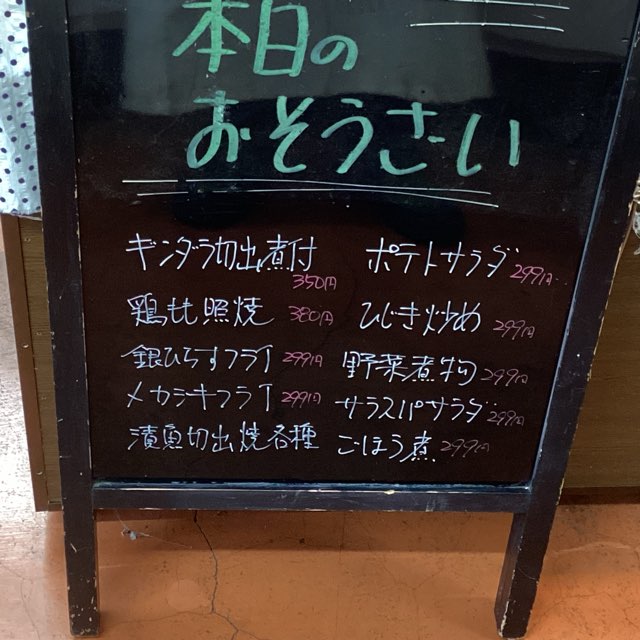 本日の
おそうさい
ギンダラ切出煮付
350円
鶏もも照焼 380円
銀ひらすフライ 299円
メカジキフライ 299円
漬魚切出焼各種
ポテトサラダ 299円
ひじき炒め 299円
野菜煮物 299円
サラスパサラダ 299円
ごぼう煮 299円